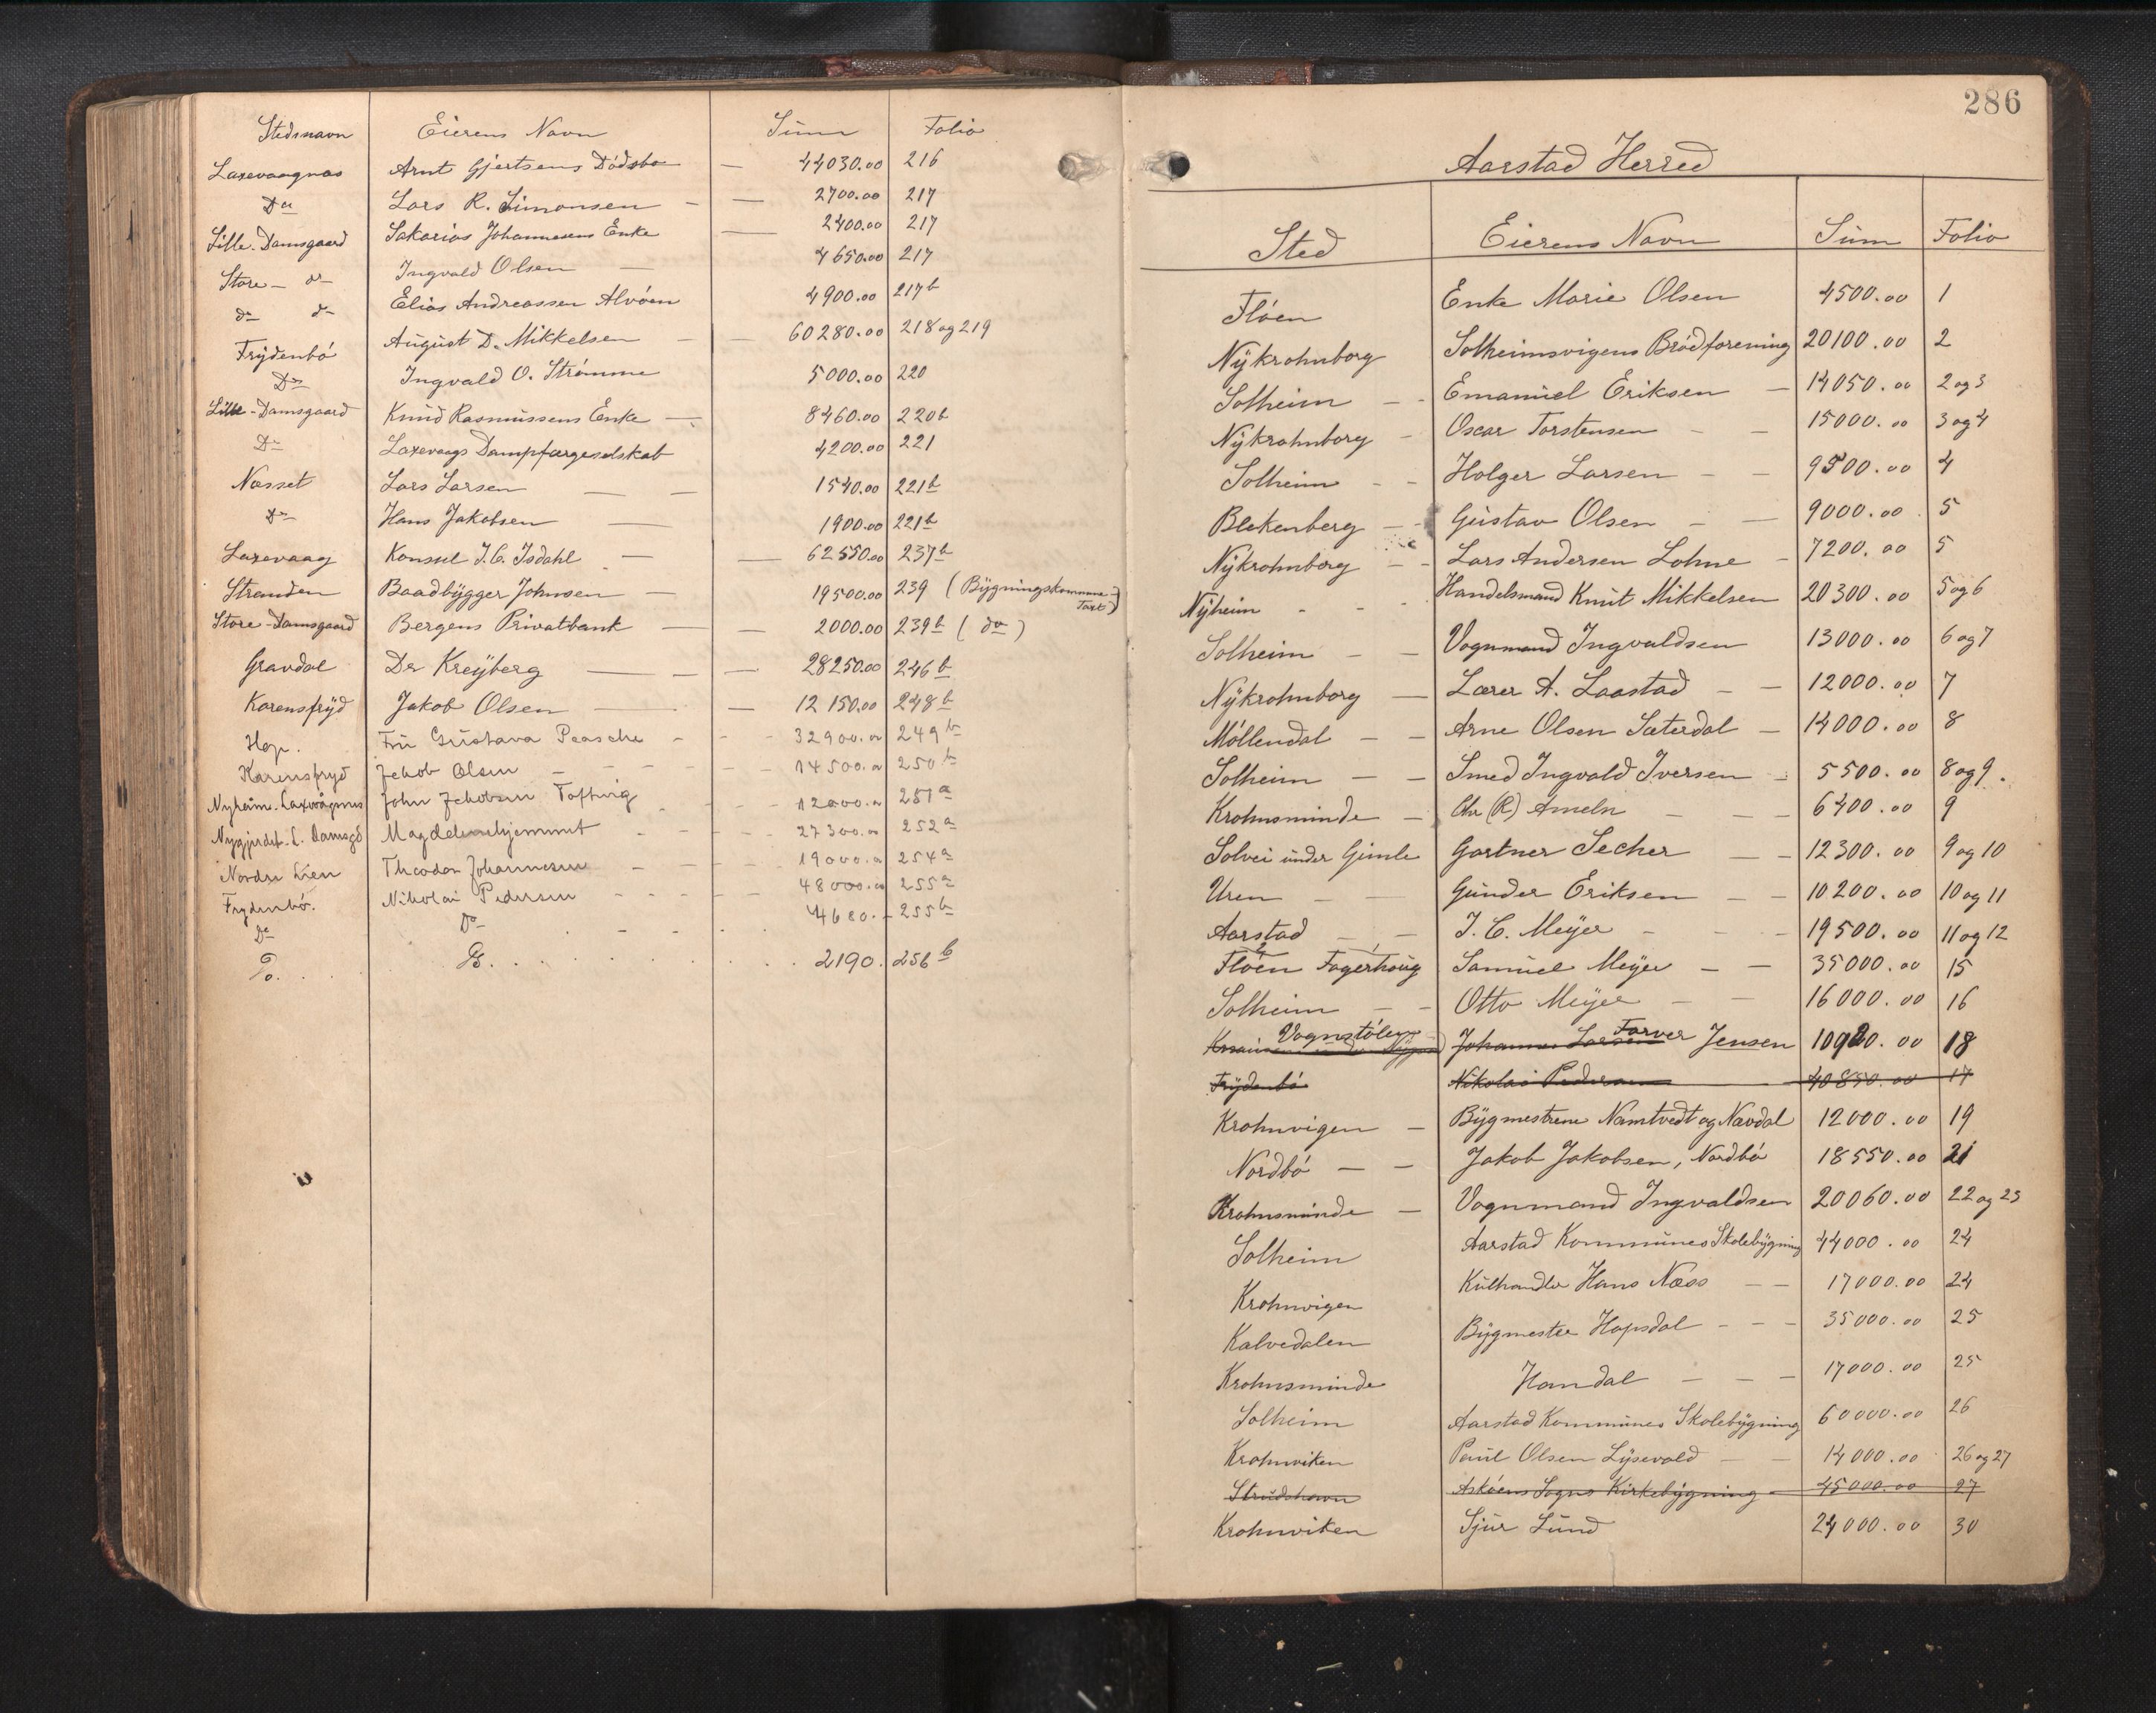 Stedsnavn Eierens Navn Sum Folio
Laxevaagnæs Arnt Gjertsens Dödsbo — 44030.00 216
Do Lars R. Simonsen — — 2700.00 217
Lille-Damsgaard Sakarias Johannesens Enke — 2400.00 217
Store - do - Ingvald Olsen — 4650.00 217
do do Elias Andreassen Alvöen 4900.00 217b
Frÿdenbö August D. Mikkelsen — — 60280.00 218 og 219
Do Ingvald O. Strömme 5000.00 220
Lille-Damsgaard Knud Rasmussens Enke — 8460.00 220b
Do Laxevaags Dampfærgeselskab 4200.00 221
Næsset Lars Larsen — — 1540.00 221b
do Hans Jakobsen — 1900.00 221b
Laxevaag Konsul J. C. Isdahl — — 62550.00 237b
Stranden Baadbÿgger Johnsen — 19500.00 239 (Bÿgningskommune-
Taxt)
Store-Damsgaard Bergens Privatbank — — 2000.00 239b ( do )
Gravdal Dr Kreÿberg — — — 28250.00 246b
Karensfrÿd Jakob Olsen — — 12150.00 248b
Hop. Fru Gustava Paasche - - - 32900.00 249b
Karensfryd Jakob Olsen - - - 14500.00 250b
Nyheim. Laxvågnæs John Jakobsen Toftevig - - - 12000.00 251a
L. Damsgd Magdalenehjemmet - - - 27300.00 252a
Nordre Lien Theodor Johannesen - 19000.00 254a
Frydenbö. Nikolai Pedersen - - - 48000.00 255a
Do Do - - - 4680.- 255b
Do. . . Do. . . . 2190. 256b
286
Aarstad Herred
Sted Eierens Navn Sum Folio
Flöen Enke Marie Olsen 4500.00 1
Nÿkrohnborg Solheimsvigens Brödforening 20100.00 2
Solheim - - Emanuel Eriksen — 14050.00 2 og 3
Nÿkrohnborg - Oscar Torstensen — — 15000.00 3 og 4
Solheim - - Holger Larsen — — 9500.00 4
Blekenberg — - Gustav Olsen — — 9000.00 5
Nÿkrohnborg — - Lars Andersen Lohne - 7200.00 5
Nÿheim - - - Handelsmand Knut Mikkelsen 20300.00 5 og 6
Solheim — — Vognmand Ingvaldsen 13000.00 6 og 7
Nÿkrohnborg — Lærer A. Laastad — — 12000.00 7
Möllendal — — Arne Olsen Sæterdal — 14000.00 8
Solheim — — Smed Ingvald Iversen — 5500.00 8 og 9.
Krohnsminde — Chr (R) Ameln — — — 6400.00 9
Solvei under Gimle Gartner Secher — — 12300.00 9 og 10
Uren — — Gunder Eriksen — — 10200.00 10 og 11
Aarstad — — J. C. Meÿer - - - 19500.00 11 og 12
Flöen Fagerhoug Samuel Meÿer — — 35000.00 15
Solheim — — Otto Meÿer — — 16000.00 16
Vognstölen Johannes Larsen Farver Jensen 10920.00 18
Frÿdenbö Nikolai Pedersen 40850.00 17
Krohnvigen — Bÿgmestrene Namtvedt og Navdal 12000.00 19
Nordbö — — Jakob Jakobsen, Nordbö 18550.00 21
Krohnsminde — Vognmand Ingvaldsen 20060.00 22 og 23
Solheim Aarstad Kommunes Skolebÿgning 44000.00 24
Krohnvigen Kulhandler Hans Næss — — 17000.00 24
Kalvedalen Bÿgmester Hopsdal - - - 35000.00 25
Krohnsminde Handal — — — 17000.00 25
Solheim Aarstad Kommunes Skolebÿgning 60000.00 26
Krohnviken Paul Olsen Lÿsevold — — 14000.00 26 og 27
Strudshavn Asköens Sogns Kirkebÿgning 45000.00 27
Krohnviken Sjur Lund 24000.00 30